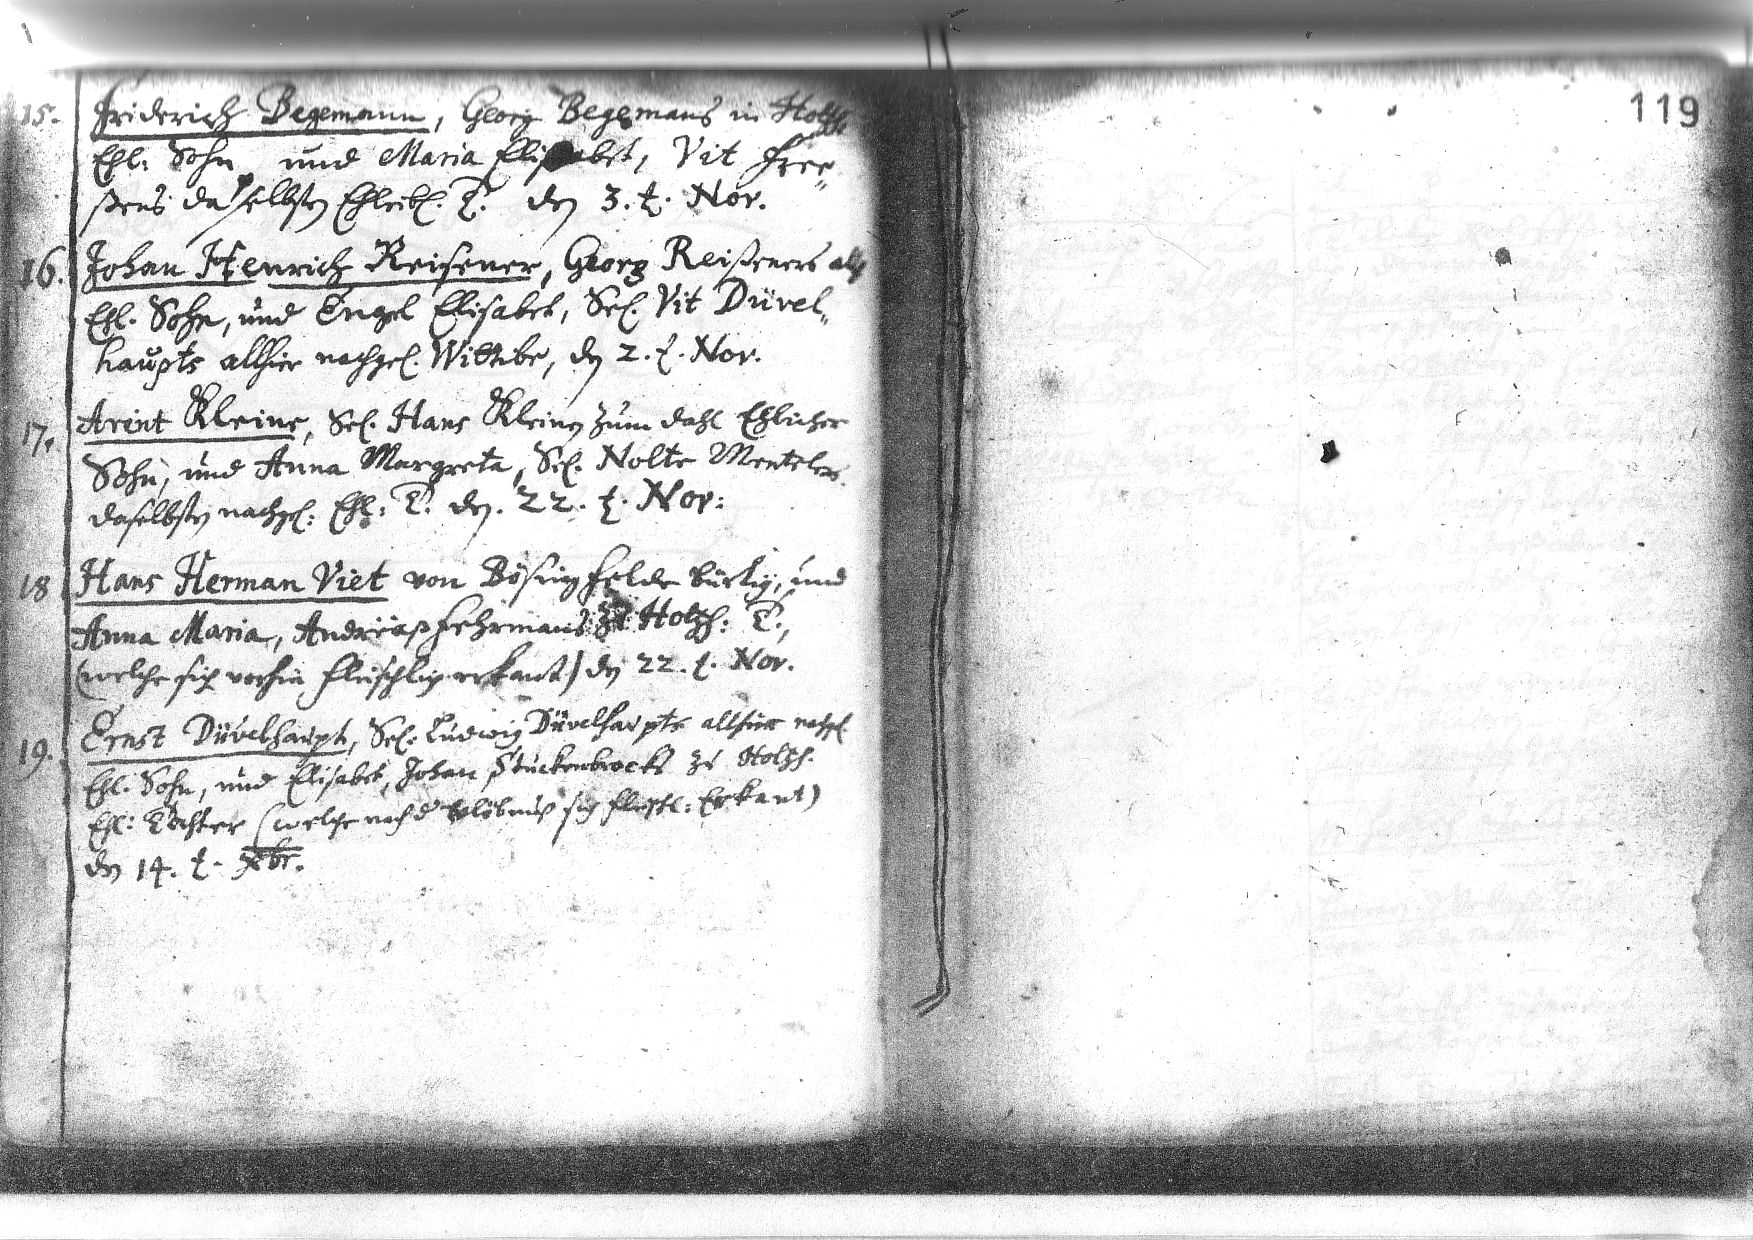 15. Friderich Begemann, Georg Begemans in Holtzh
Ehl: Sohn und Maria Elisabet, Vit Free„
sens daselbsten Ehleibl. T. den 3. t. Nov.
16. Johan Henrich Reisener, Georg Reißeners alh
Ehl. Sohn, und Engel Elisabet, Sel. Vit Düvel„
haupts allhier nachgel. Wittibe, den 2. t. Nov.
17. Arent Kleine, Sel. Hans Kleinen zum dahl Ehlicher
Sohn, und Anna Margreta, Sel. Nolte Mentelers
daselbsten nachgel: Ehl: T. den. 22. t. Nov:
18 Hans Herman Viet von Bösingfelde bürtig, und
Anna Maria, Andreas Fehrmans zu Holtzh: T.,
(welche sich vorhin fleischlich erkant) den 22. t. Nov.
19. Ernst Düvelhaupt, Sel. Ludwig Düvelhaupts allhier nachgl
Ehl. Sohn, und Elisabet, Johan Stuckenbrocks zu Holtzh.
Ehl: Tochter (welche nach d Verlöbnuß sich fleischl: Erkant)
den 14. t. Xbr.
119